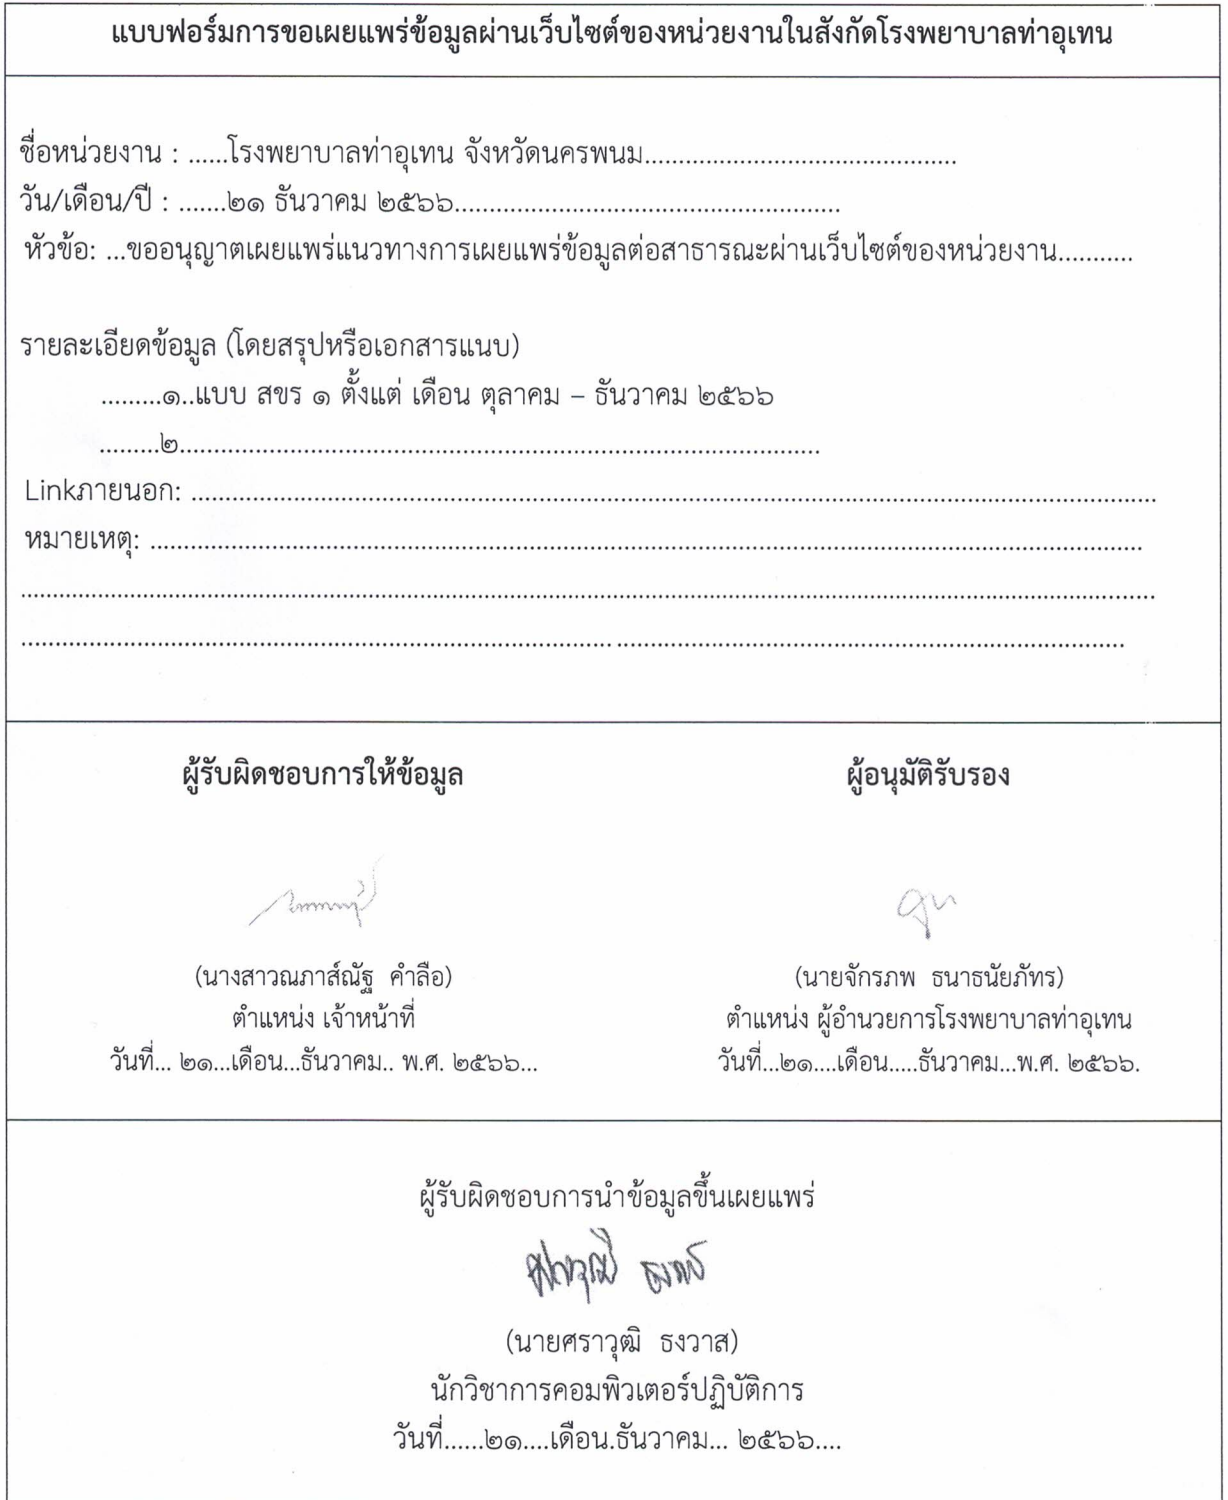 แบบฟอร์มการขอเผยแพร่ข้อมูลผ่านเว็บไซต์ของหน่วยงานในสังกัดโรงพยาบาลท่าอุเทน
ชื่อหน่วยงาน : ......โรงพยาบาลท่าอุเทน จังหวัดนครพนม...............................................
วัน/เดือน/ปี : .......๒๑ ธันวาคม ๒๕๖๖..........................................................
หัวข้อ: ...ขออนุญาตเผยแพร่แนวทางการเผยแพร่ข้อมูลต่อสาธารณะผ่านเว็บไซต์ของหน่วยงาน...........
รายละเอียดข้อมูล (โดยสรุปหรือเอกสารแนบ)
.........๑..แบบ สขร ๑ ตั้งแต่ เดือน ตุลาคม – ธันวาคม ๒๕๖๖
.........๒................................................................................................
Linkภายนอก: ................................................................................................................................................
หมายเหตุ: ....................................................................................................................................................
ผู้รับผิดชอบการให้ข้อมูล ผู้อนุมัติรับรอง
(นางสาวณภาส์ณัฐ คำลือ) (นายจักรภพ ธนาธนัยภัทร)
ตำแหน่ง เจ้าหน้าที่ ตำแหน่ง ผู้อำนวยการโรงพยาบาลท่าอุเทน
วันที่... ๒๑...เดือน...ธันวาคม.. พ.ศ. ๒๕๖๖... วันที่...๒๑....เดือน.....ธันวาคม...พ.ศ. ๒๕๖๖.
ผู้รับผิดชอบการนำข้อมูลขึ้นเผยแพร่
ศราวุฒิ ธงวาส
(นายศราวุฒิ ธงวาส)
นักวิชาการคอมพิวเตอร์ปฏิบัติการ
วันที่......๒๑....เดือน.ธันวาคม... ๒๕๖๖....